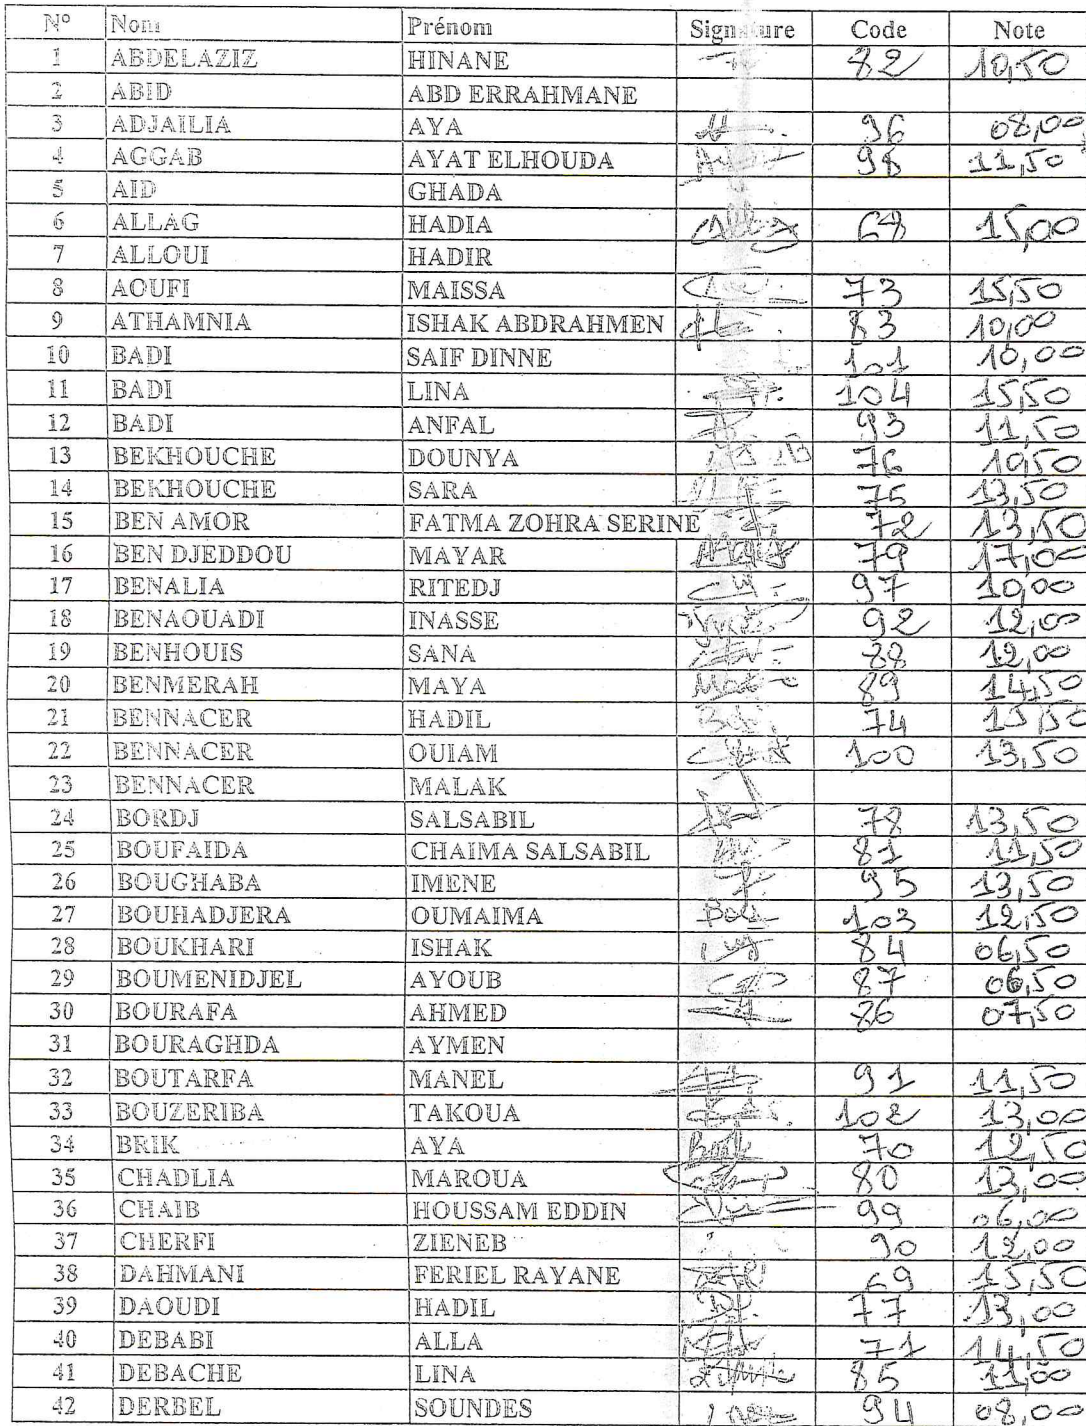 N° Nom Prénom Signature Code Note
1 ABDELAZIZ HINANE 82 10,50
2 ABID ABD ERRAHMANE
3 ADJAILIA AYA 96 08,00
4 AGGAB AYAT ELHOUDA 98 11,50
5 AID GHADA
6 ALLAG HADIA 68 15,00
7 ALLOUI HADIR
8 AOUFI MAISSA 73 15,50
9 ATHAMNIA ISHAK ABDRAHMEN 83 10,00
10 BADI SAIF DINNE 101 10,00
11 BADI LINA 104 15,50
12 BADI ANFAL 93 11,50
13 BEKHOUCHE DOUNYA 76 10,50
14 BEKHOUCHE SARA 75 13,50
15 BEN AMOR FATMA ZOHRA SERINE 72 13,50
16 BEN DJEDDOU MAYAR 79 17,00
17 BENALIA RITEDJ 97 10,00
18 BENAOUADI INASSE 92 12,00
19 BENHOUIS SANA 88 12,00
20 BENMERAH MAYA 89 14,50
21 BENNACER HADIL 74
22 BENNACER OUIAM 100 13,50
23 BENNACER MALAK
24 BORDJ SALSABIL 78 13,50
25 BOUFAIDA CHAIMA SALSABIL 81 11,50
26 BOUGHABA IMENE 95 13,50
27 BOUHADJERA OUMAIMA 103 12,50
28 BOUKHARI ISHAK 84 06,50
29 BOUMENIDJEL AYOUB 87 06,50
30 BOURAFA AHMED 86 07,50
31 BOURAGHDA AYMEN
32 BOUTARFA MANEL 91 11,50
33 BOUZERIBA TAKOUA 102 13,00
34 BRIK AYA 70 12,50
35 CHADLIA MAROUA 80 13,00
36 CHAIB HOUSSAM EDDIN 99 06,00
37 CHERFI ZIENEB 90 12,00
38 DAHMANI FERIEL RAYANE 69 15,50
39 DAOUDI HADIL 77 13,00
40 DEBABI ALLA 71 14,50
41 DEBACHE LINA 85 11,00
42 DERBEL SOUNDES 94 08,00